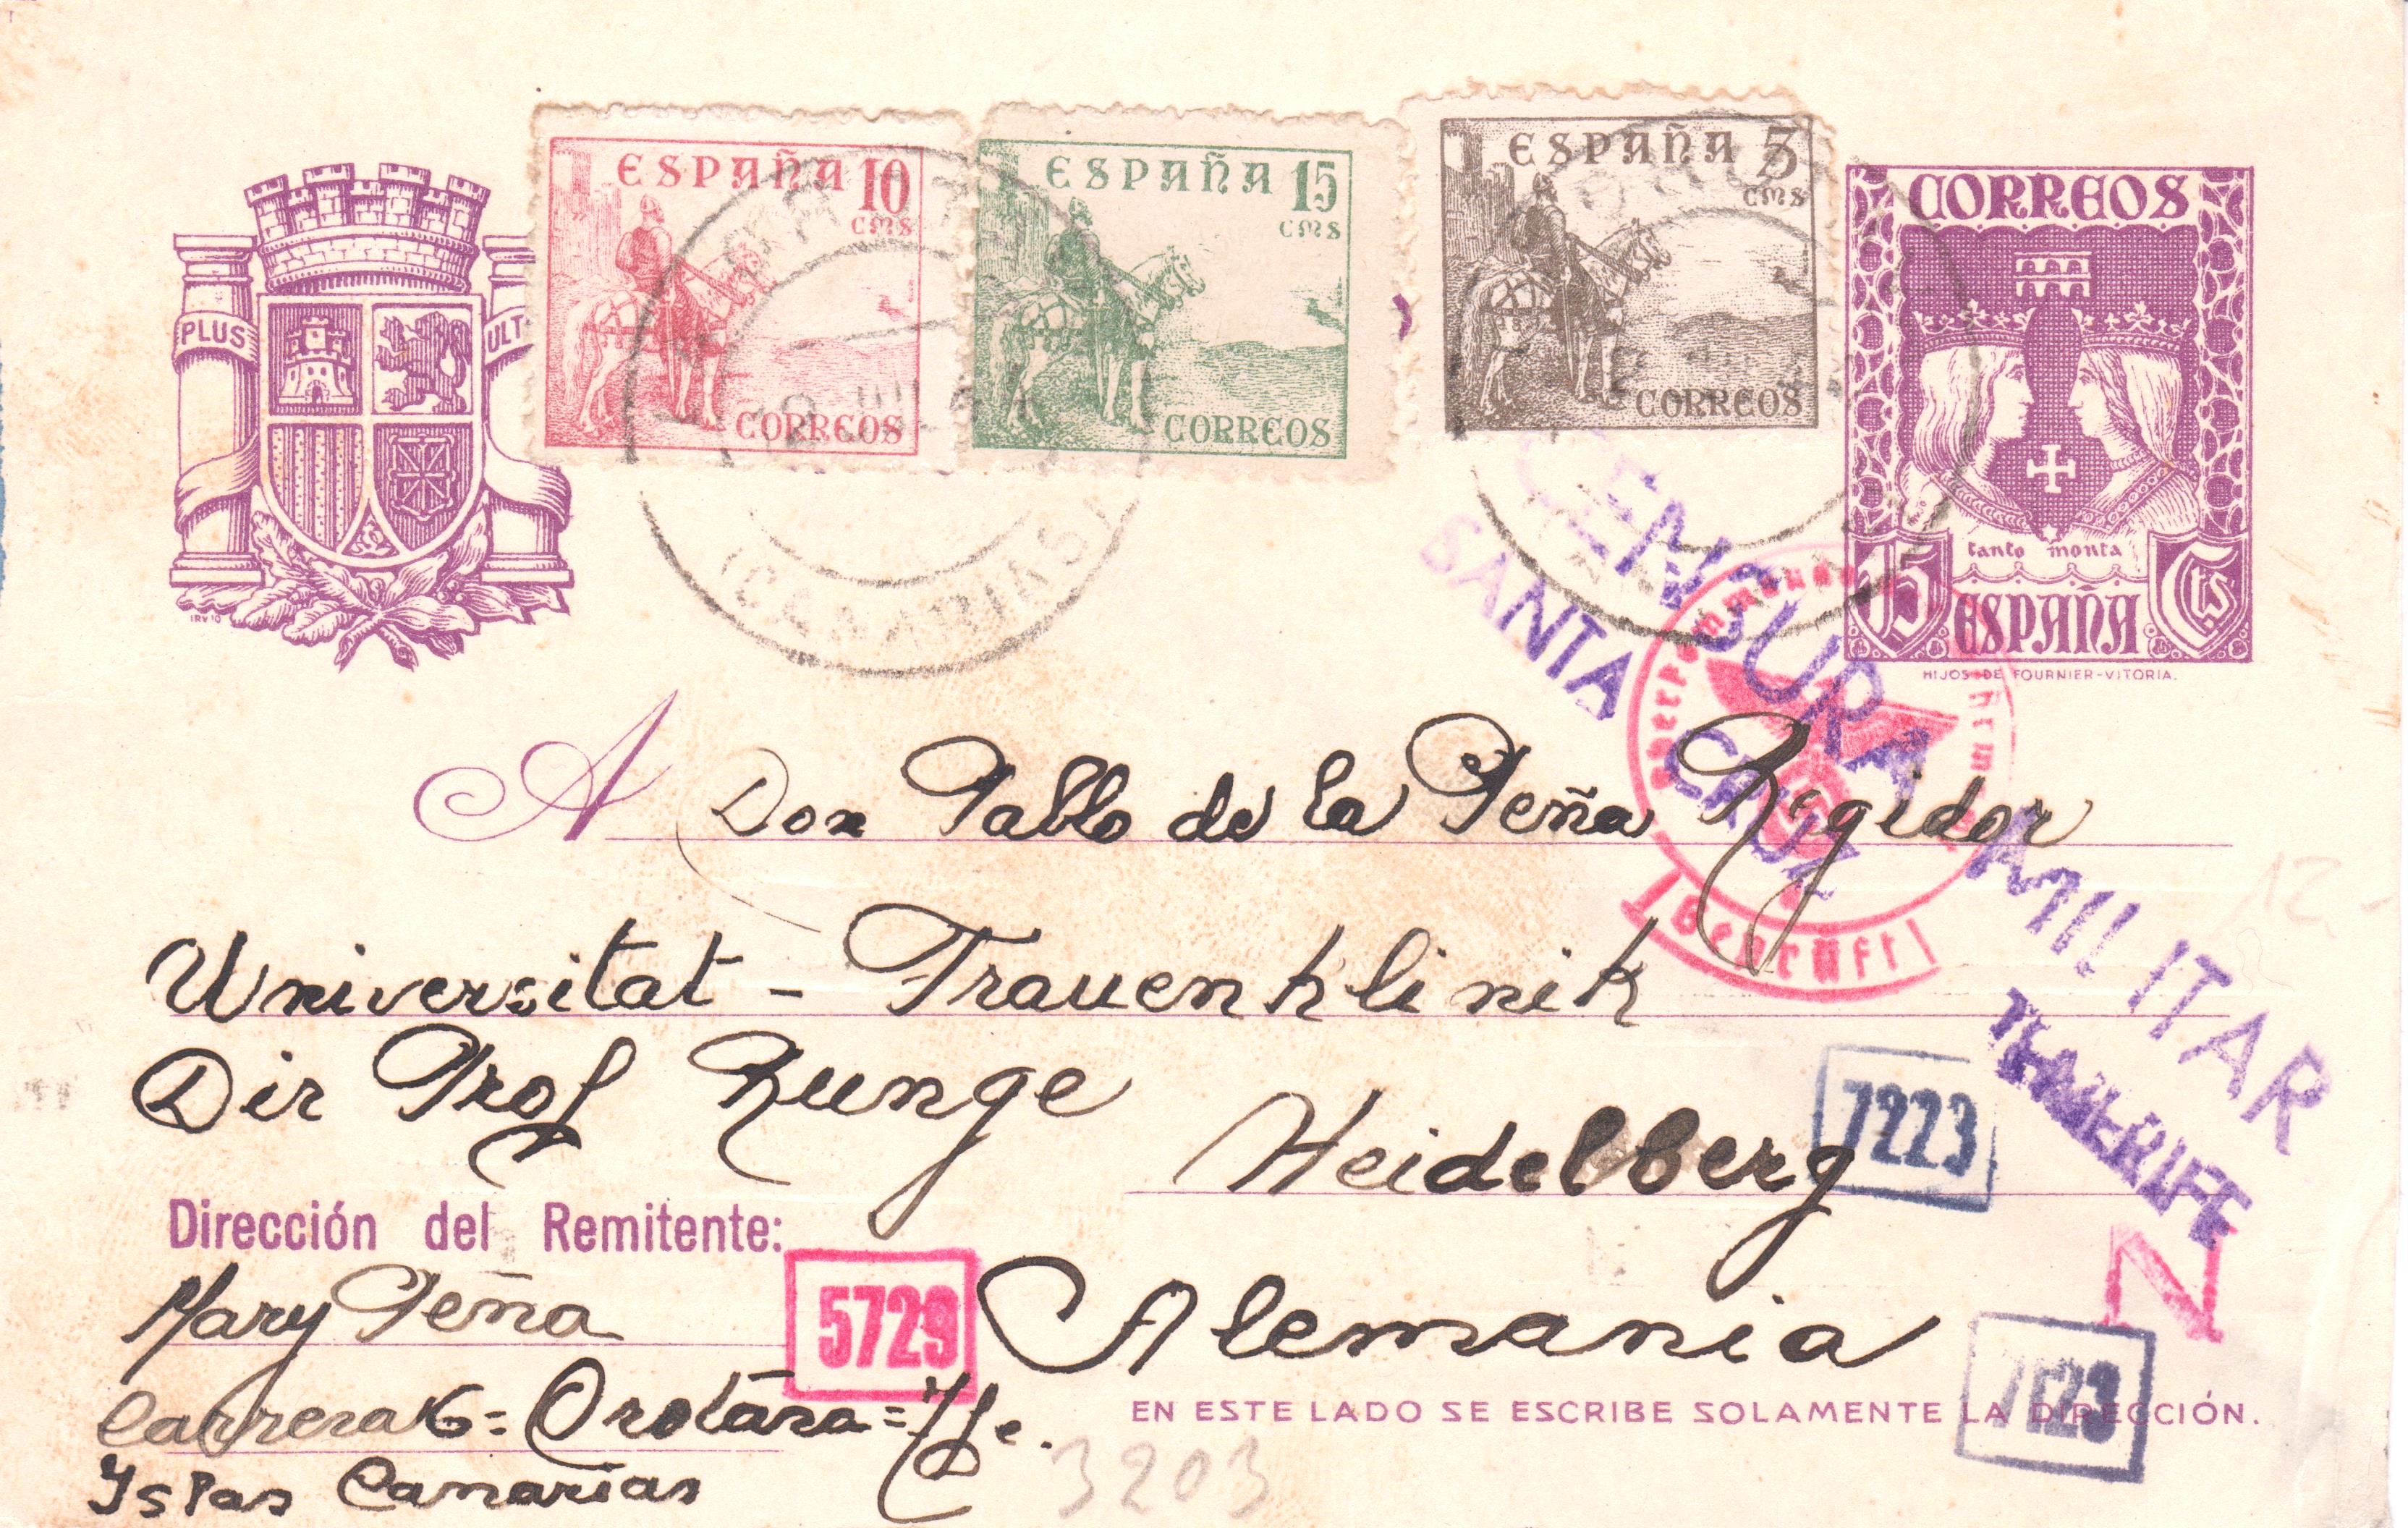 ESPAÑA 10 CMS
CORREOS
ESPAÑA 15 CMS
CORREOS
ESPAÑA 5 CMS
CORREOS
CORREOS
tanto monta
15 Cts
ESPAÑA
HIJOS DE FOURNIER-VITORIA.
PLUS ULT
(CANARIAS)
CENSURA MILITAR
SANTA CRUZ TENERIFE
Geprüft
A Don Pablo de la Peña Regidor
Universitat - Frauenklinik
Dir Prof Runge
Heidelberg
7223
Alemania
N
Dirección del Remitente:
Mary Peña
5729
Carrera 6 = Orotava = Tfe.
Islas Canarias
EN ESTE LADO SE ESCRIBE SOLAMENTE LA DIRECCIÓN.
3203
12-